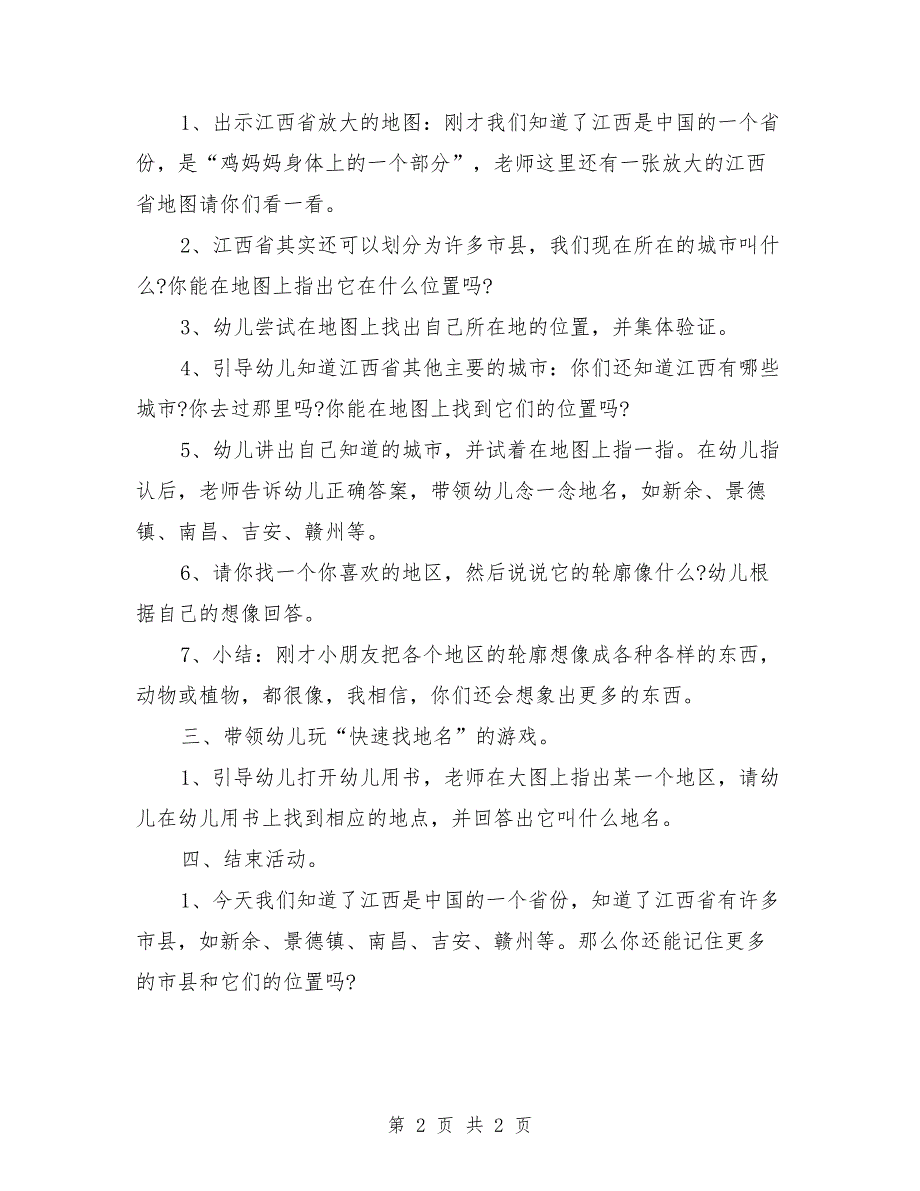 1、出示江西省放大的地图：刚才我们知道了江西是中国的一个省
份，是“鸡妈妈身体上的一个部分”，老师这里还有一张放大的江西
省地图请你们看一看。
2、江西省其实还可以划分为许多市县，我们现在所在的城市叫什
么?你能在地图上指出它在什么位置吗?
3、幼儿尝试在地图上找出自己所在地的位置，并集体验证。
4、引导幼儿知道江西省其他主要的城市：你们还知道江西有哪些
城市?你去过那里吗?你能在地图上找到它们的位置吗?
5、幼儿讲出自己知道的城市，并试着在地图上指一指。在幼儿指
认后，老师告诉幼儿正确答案，带领幼儿念一念地名，如新余、景德
镇、南昌、吉安、赣州等。
6、请你找一个你喜欢的地区，然后说说它的轮廓像什么?幼儿根
据自己的想像回答。
7、小结：刚才小朋友把各个地区的轮廓想像成各种各样的东西，
动物或植物，都很像，我相信，你们还会想象出更多的东西。
三、带领幼儿玩“快速找地名”的游戏。
1、引导幼儿打开幼儿用书，老师在大图上指出某一个地区，请幼
儿在幼儿用书上找到相应的地点，并回答出它叫什么地名。
四、结束活动。
1、今天我们知道了江西是中国的一个省份，知道了江西省有许多
市县，如新余、景德镇、南昌、吉安、赣州等。那么你还能记住更多
的市县和它们的位置吗?
第 2 页 共 2 页